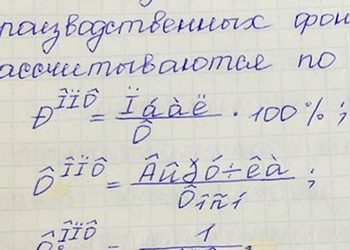 производственных фон
ассчитываются по
Ð^ÎÏÔ = Ïáàë / Ô · 100%;
Ô^ÎÏÔ = Âûðó÷êà / Ôîñí ;
Ô^ÎÏÔ = 1